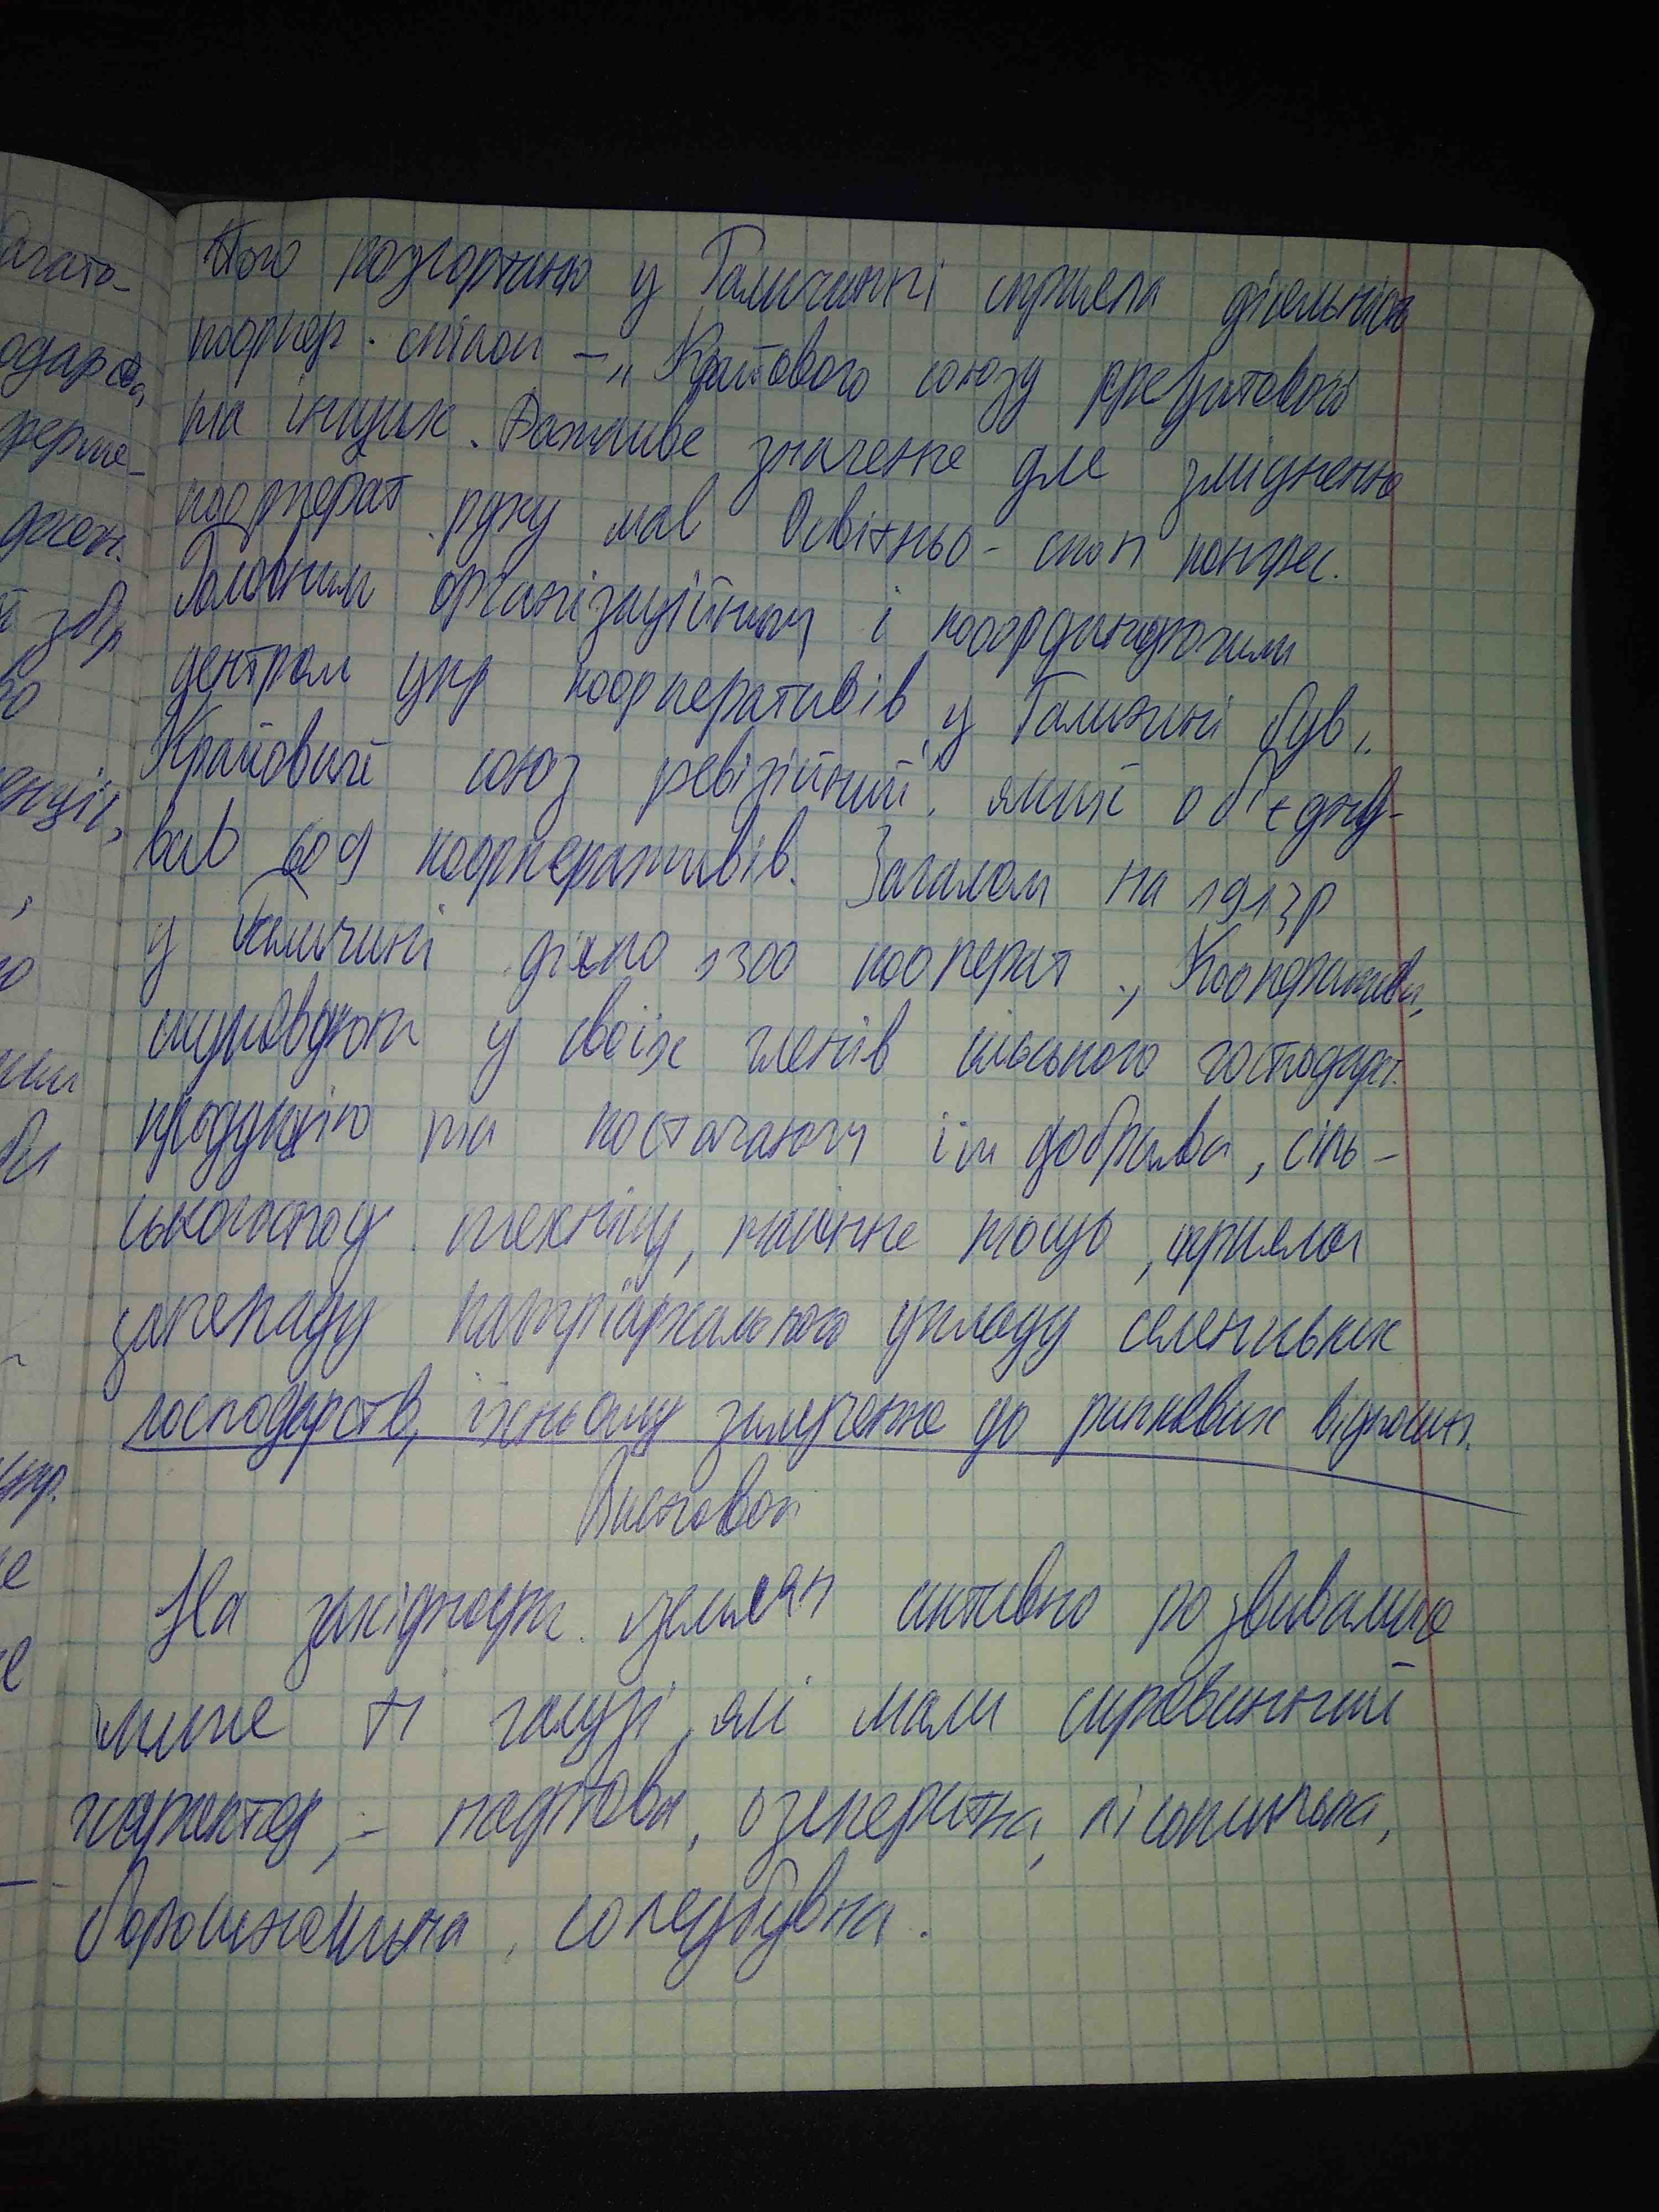 агато-
одарств,
ферме-
джен.
й збір
го
енцій,
укр.
Його розгортаню у Галичинні сприяла діяльність
коопер. спілок – „Крайового союзу кредитового
та інших. Важливе значення для зміцненню
кооперат. руху мав Освітньо-екон конгрес.
Головним організаційним і координаційним
центром укр кооперативів у Галичині був „
Крайовий союз ревізійний", який об'єдну-
вав 609 кооперативів. Загалом на 1913р
у Галичині діяло 1300 кооперат., Кооперативи,
скуповуючи у своїх членів сільського господарст.
продукцію та постачаючи їм добрива, сіль-
ськогоспод. техніку, насіння тощо, сприяли
занепаду патріархального укладу селянських
господарств, їхньому залучення до ринкових відносин.
Висновок
На західноукр. землях активно розвивалися
лише ті галузі, які мали сировинний
характер, – нафтова, озокеритна, лісопильна,
борошномельна, соледобувна.